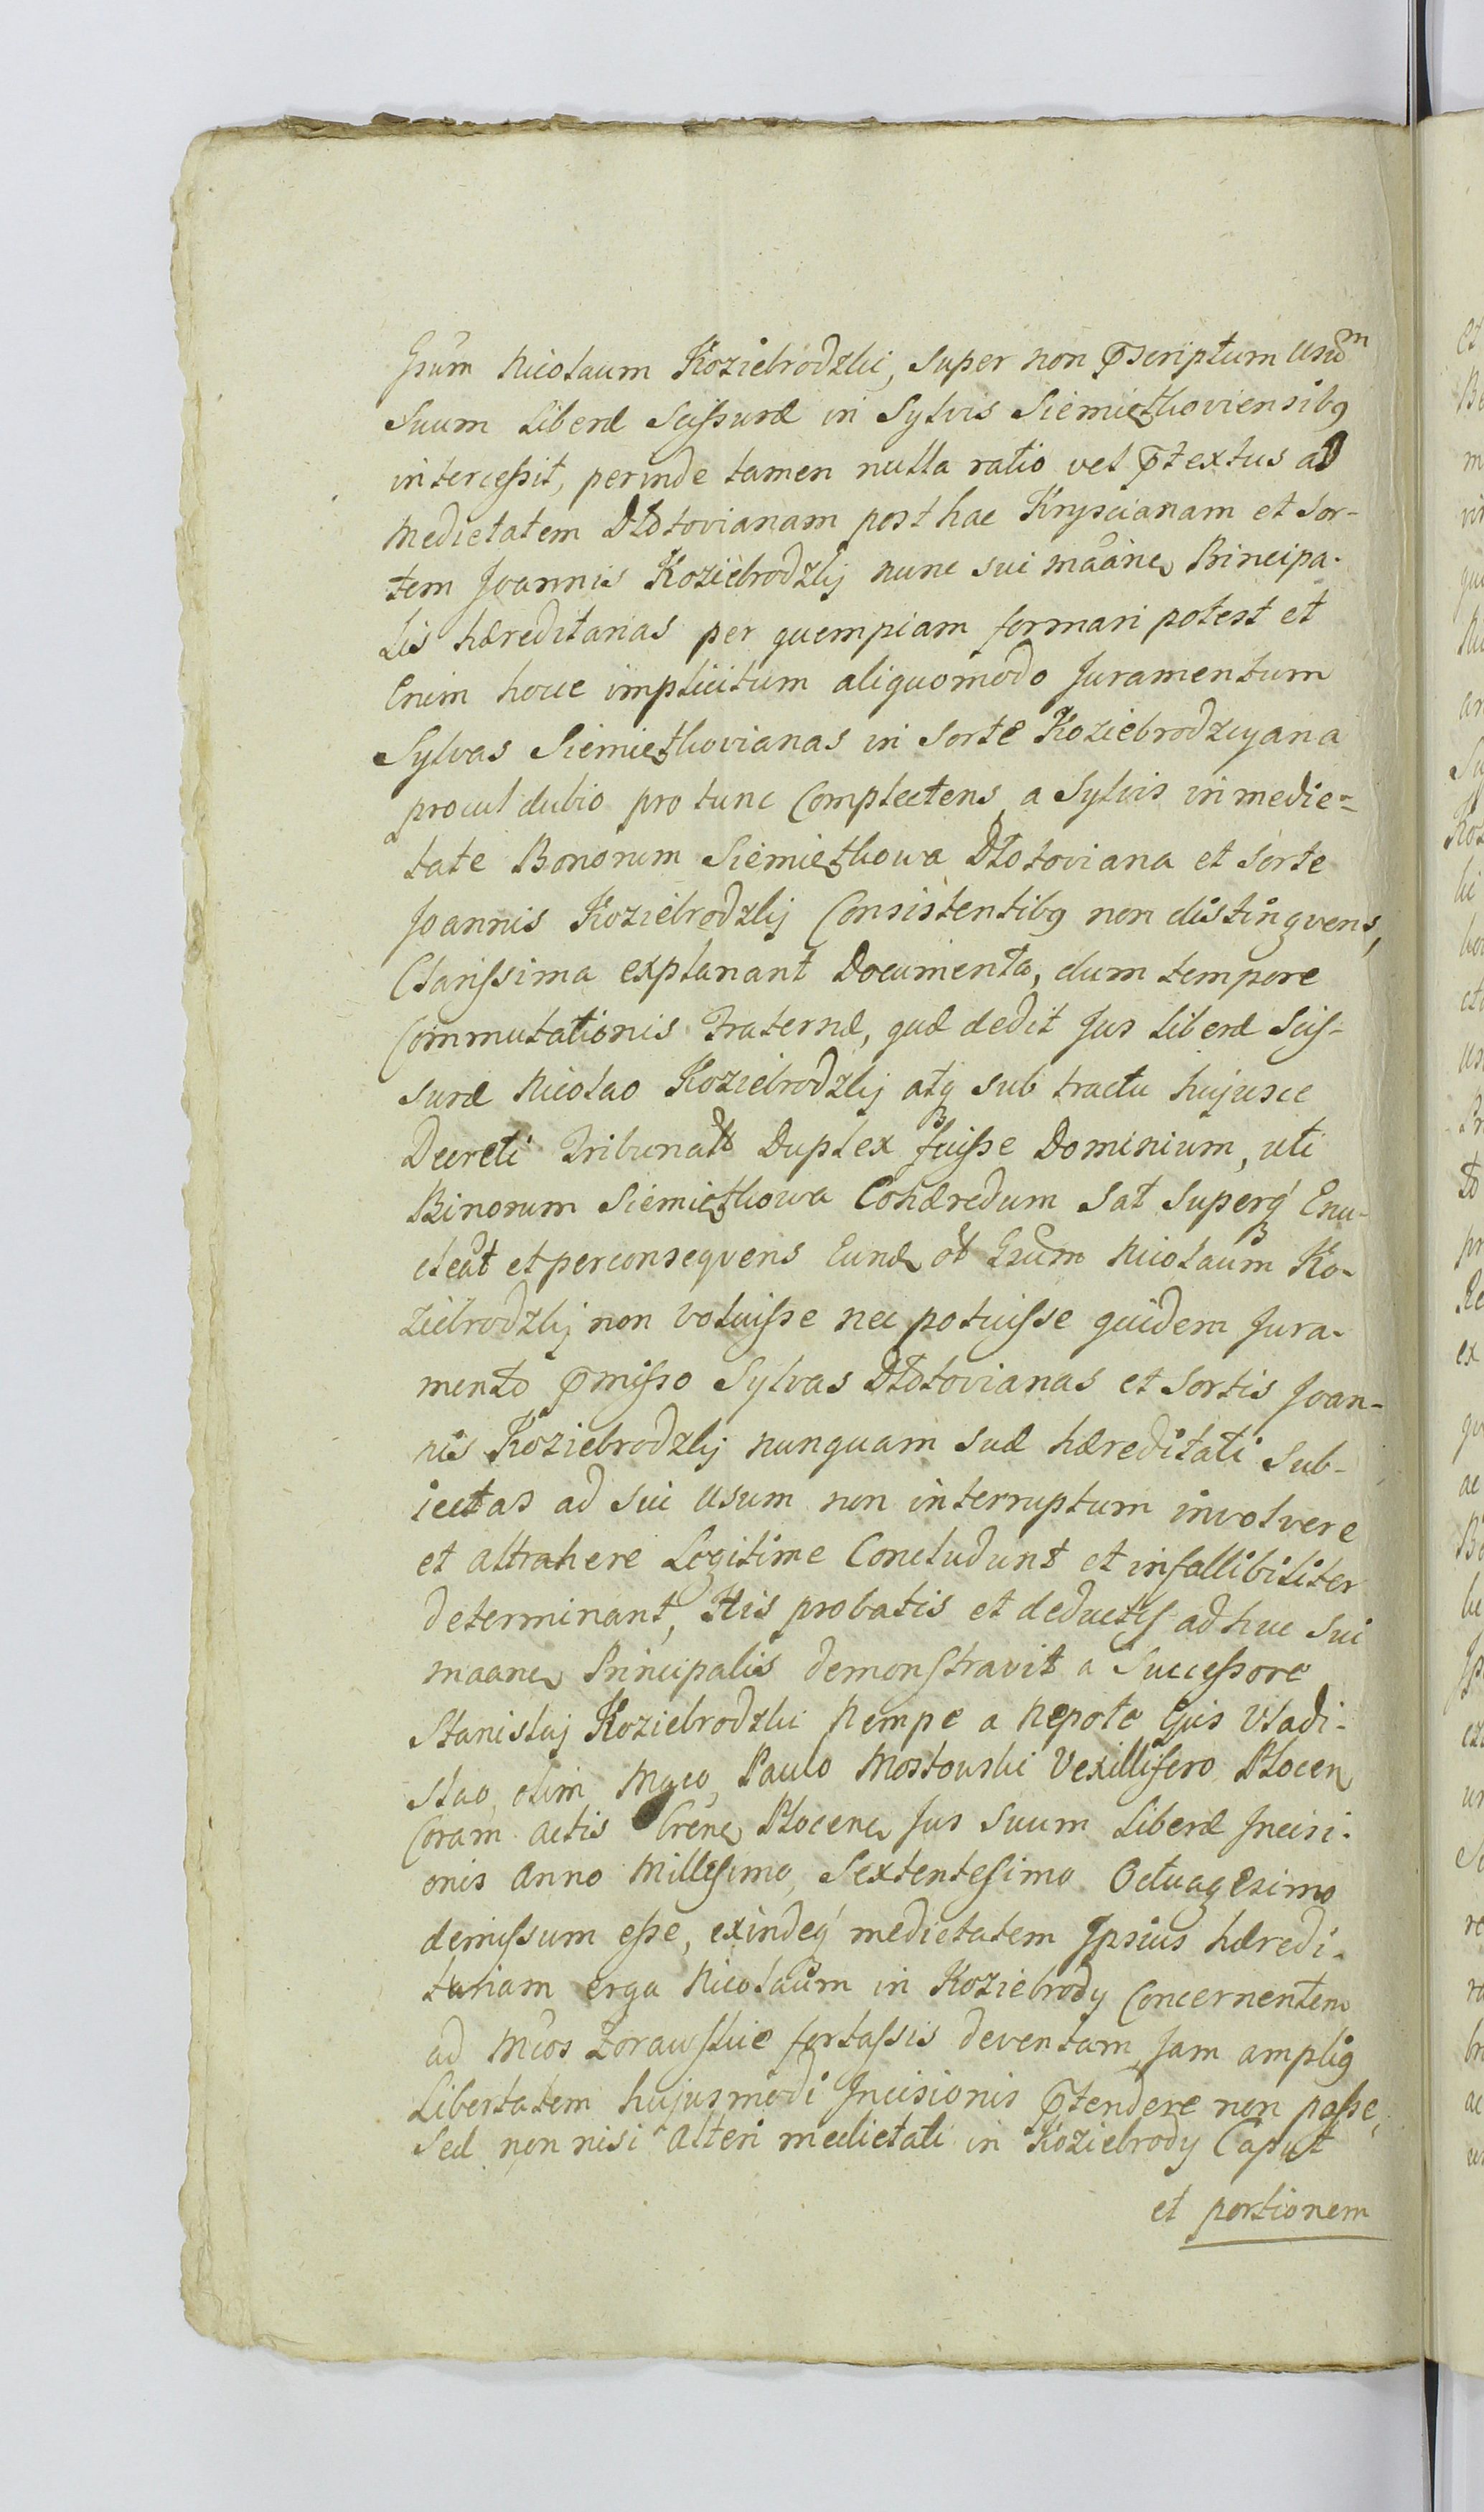 Gsum Nicolaum Koziebrodzki, super non p̄scriptum usum
Suum Liberæ Scissuræ in Sylvis Siemiętkoviensibꝰ
intercessit, perinde tamen nulla ratio vel p̄textus ad
Medietatem Dłotovianam post hac Kryscianam et Sor-
tem Joannis Koziebrodzkij nunc sui maane Principa-
lis hæreditarias per quempiam formari potest et
Enim hocce implicitum aliquomodo Juramentum
Sylvas Siemiętkovianas in Sorte Koziebrodzcyana
procul dubio pro tunc Complectens a Sylvis in medie=
tate Bonorum Siemiętkowa Dłotoviana et Sorte
Joannis Koziebrodzkij Consistentibꝰ non distingvens,
Clarissima explanant Documenta, dum tempore
Commutationis Fraternæ, quæ dedit Jus Liberæ Scis-
suræ Nicolao Koziebrodzkij atq sub tractu hujusce
Decreti Tribunalis Duplex fuisse Dominium, uti
Binorum Siemiętkowa Cohæredum Sat Superq Enu-
cleat et perconsequens Eund Gsum Nicolaum Ko-
ziebrodzkij non voluisse nec potuisse quidem Jura-
mento p̄misso Sylvas Dłotovianas et Sortis Joan-
nis Koziebrodzkij nunquam suæ hæreditati Sub-
iectas ad sui usum non interruptum involvere
et attrahere Legitime Concludunt et infallibiliter
determinant, His probatis et deductis adhuc Sui
maane Principalis demonstravit a Successore
Stanislaj Koziebrodzki Nempe a Nepote Ejus Vladi-
slao, olim Mgco Paulo Mostowski Vexillifero Płocen
Coram actis Crene Płocen Jus Suum Liberæ Incisi-
onis Anno Millesimo, Sextentesimo Octuagesimo
demissum esse, exindeq medietatem Ipsius hæredi-
tariam erga Nicolaum in Koziebrody Concernentem
ad Mcos Zorawskie fortassis deventam Jam ampliꝰ
Libertatem hujusmodi Incisionis p̄tendere non posse,
Sed non nisi alteri medietati in Koziebrody Caput
et portionem